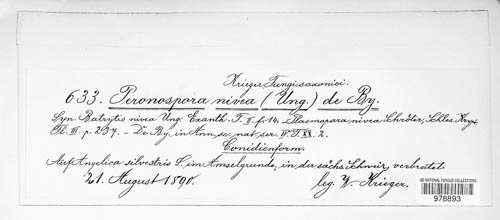 Krieger, Fungi saxonici.
633. Peronospora nivea (Ung.) de By.
Syn. Botrytis nivea Ung. Exanth. T. II f. 14. Plasmopara nivea Schröter, Schles. Krypt.
Fl. III. p. 237. – De By. in Ann. sc. nat. ser. IV. T. XX. 2.
Conidienform.
Auf Angelica silvestris L. im Amselgrunde, in der sächs. Schweiz, verbreitet.
21. August 1890. leg. W. Krieger.
US NATIONAL FUNGUS COLLECTIONS
978893